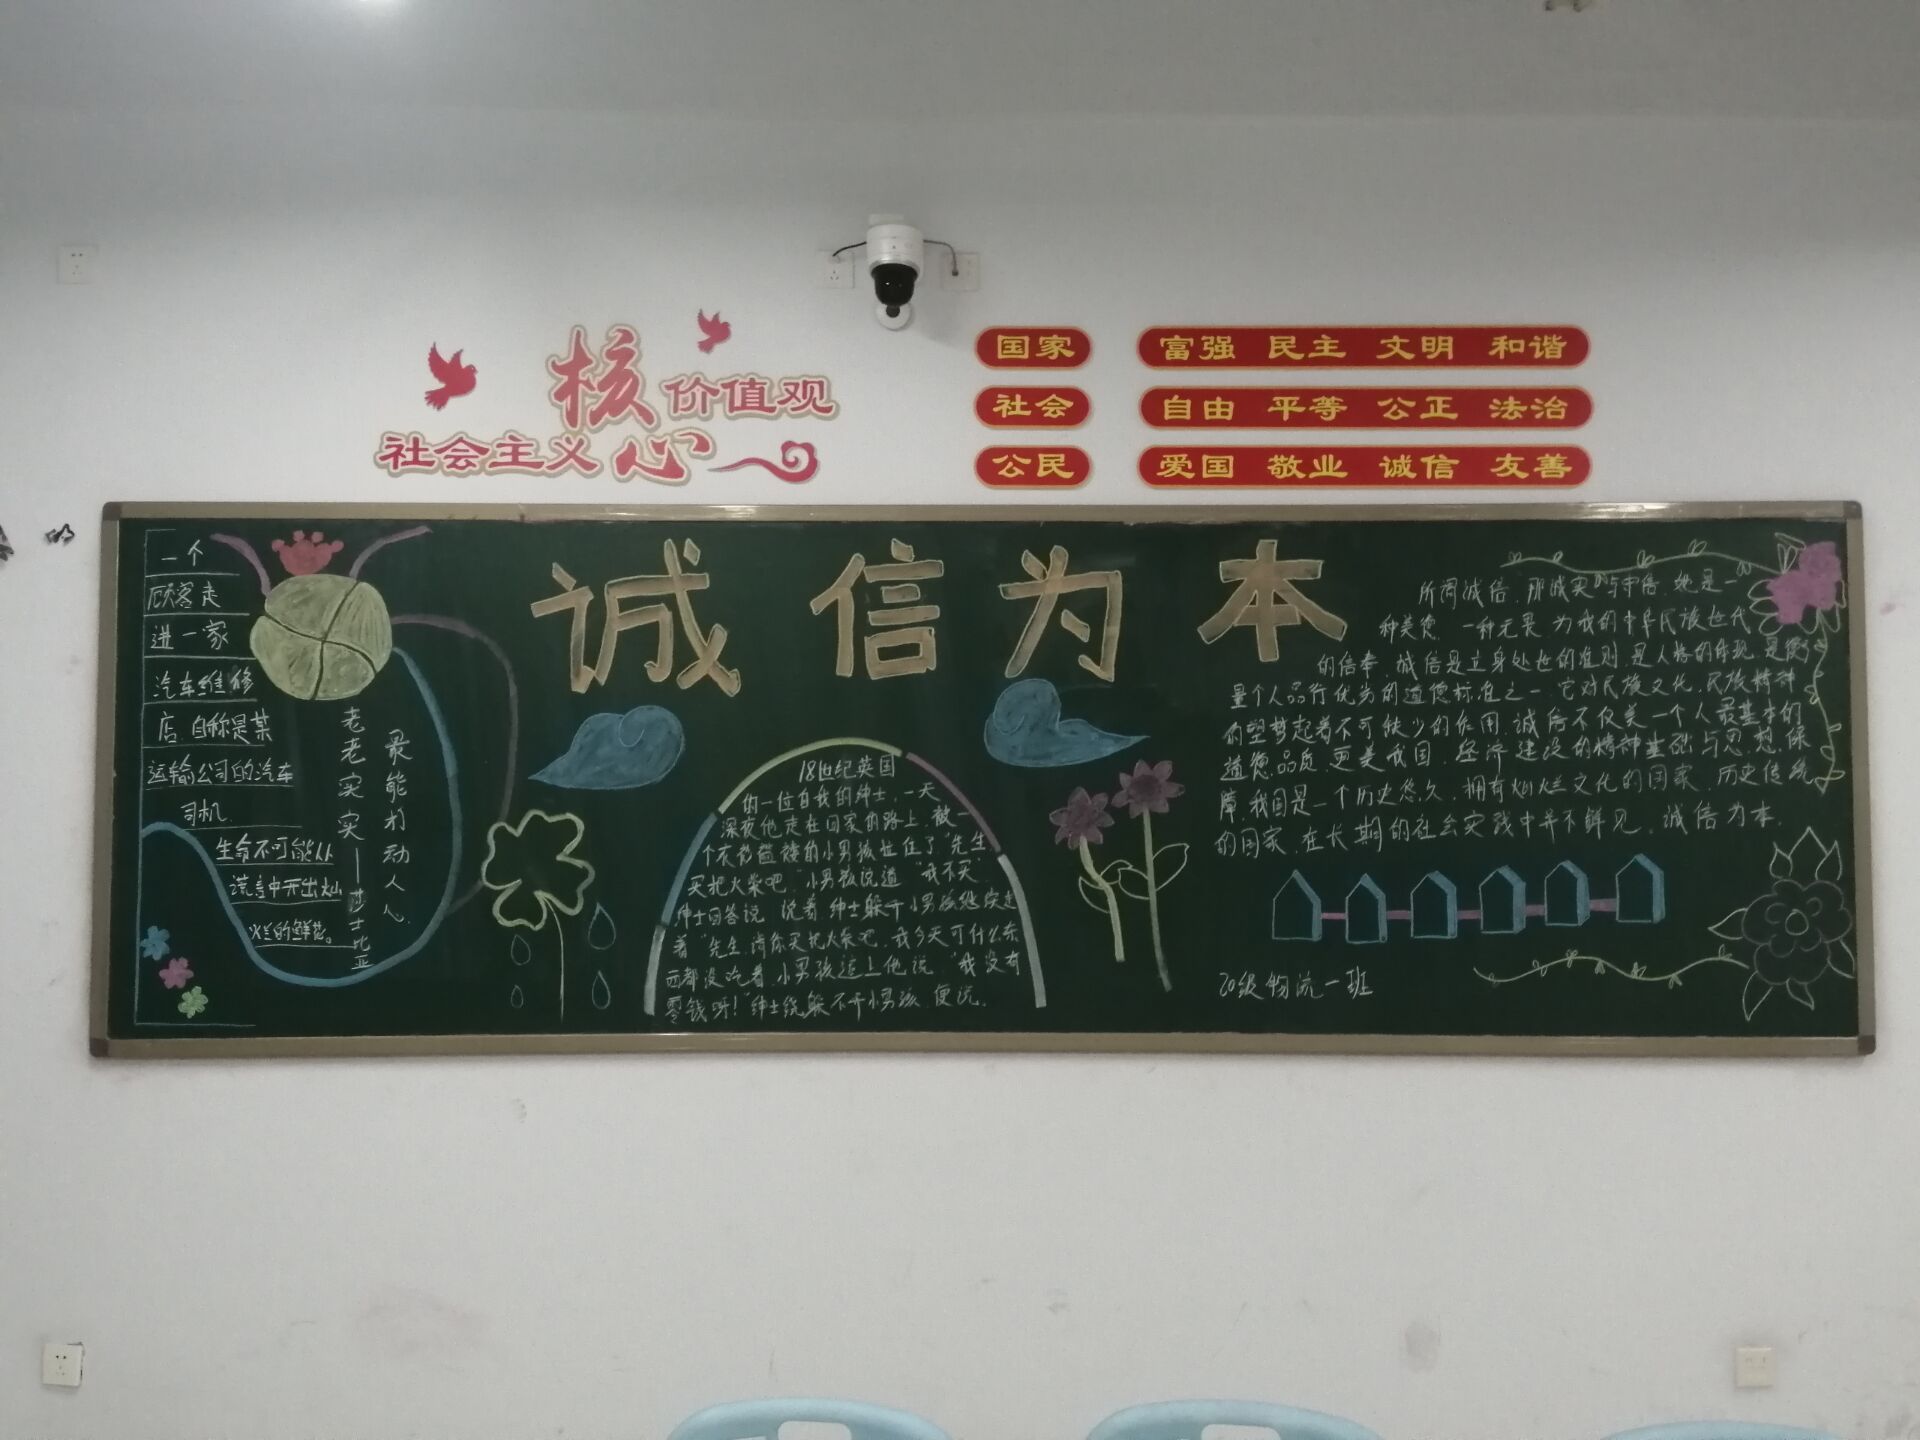 核心价值观
社会主义
国家 富强 民主 文明 和谐
社会 自由 平等 公正 法治
公民 爱国 敬业 诚信 友善
诚信为本
一个
顾客走
进一家
汽车维修
店,自称是某
运输公司的汽车
司机.
生命不可能从
谎言中开出灿
烂的鲜花。
老老实实
最能打动人心
——莎士比亚
18世纪英国
的一位自我的绅士,一天
深夜他走在回家的路上,被一
个衣衫褴褛的小男孩拦住了"先生
买把火柴吧,"小男孩说道"我不买"
绅士回答说 说着绅士躲开小男孩继续走
着"先生,请你买把火柴吧,我今天可什么东
西都没吃着,小男孩追上他说,"我没有
零钱呀!"绅士绕躲不开小男孩,便说.
所谓诚信,即诚实与守信,她是一
种美德,一种元畏,为我们中华民族世代
的信奉,诚信是立身处世的准则,是人格的体现,是衡
量个人品行优为的道德标准之一,它对民族文化,民族精神
的塑梦起着不可缺少的作用,诚信不仅美一个人最基本的
道德,品质,更美我国,经济建设的精神基础与思想保
障.我国是一个历史悠久,拥有灿烂文化的国家,历史传统
的国家,在长期的社会实践中并不鲜见,诚信为本.
20级物流一班